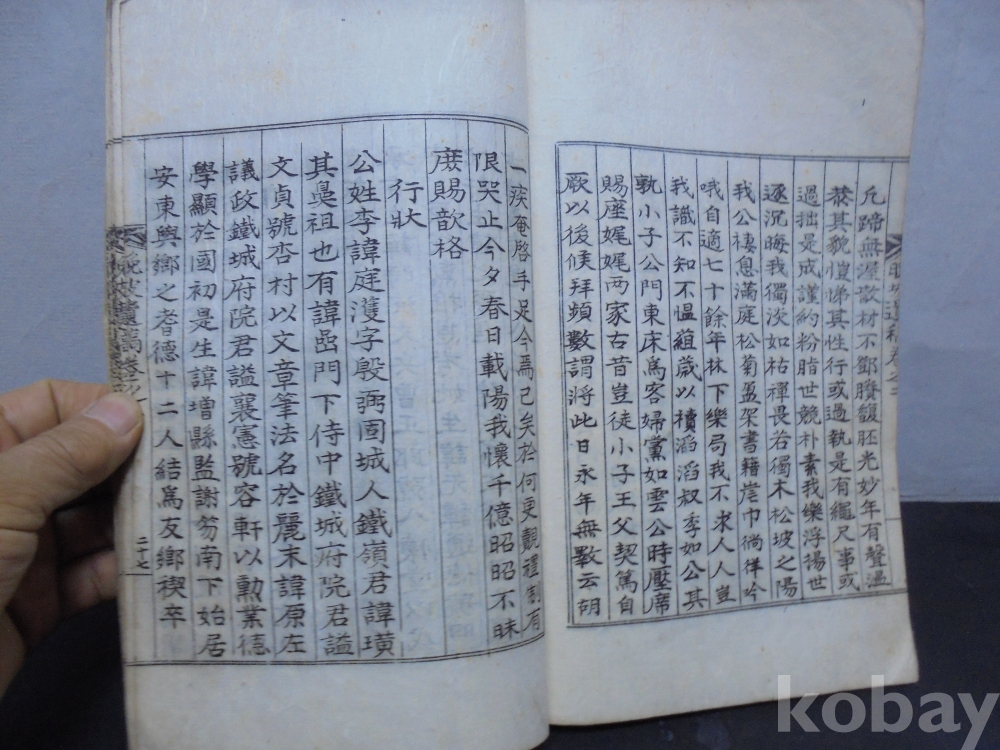 凡蹄無渥
材不鄧賸馥胚光妙年有聲溫
其貌愷悌其性行或過執是有繩尺事或
過拙是成謹約粉脂世競朴素我樂浮揚世
逐沉晦我獨淡如枯禪畏若獨木松坡之陽
我公棲息滿庭松菊盈架書籍崖巾徜徉吟
哦自適七十餘年林下樂局我不求人人豈
我識不知不慍蒕葳以櫝滔滔叔季如公其
孰小子公門東床爲客婦黨如雲公時壓席
賜座娓娓两家右昔豈徒小子王父契篤自
厥以後候拜頻數謂將此日永年無斁云胡
一疾奄啓手足今焉已矣於何更覩禮制有
限哭止今夕春日載陽我懷千億昭昭不昧
庶賜歆格
行狀
公姓李諱庭濩字殷弼固城人鐵嶺君諱璜
其鼻祖也有諱嵒門下侍中鐵城府院君謚
文貞號杏村以文章筆法名於麗末諱原左
議政鐵城府院君謚襄憲號容軒以勳業德
學顯於國初是生諱增縣監謝笏南下始居
安東與鄉之耆德十二人結爲友鄉稧卒
二十七
kobay